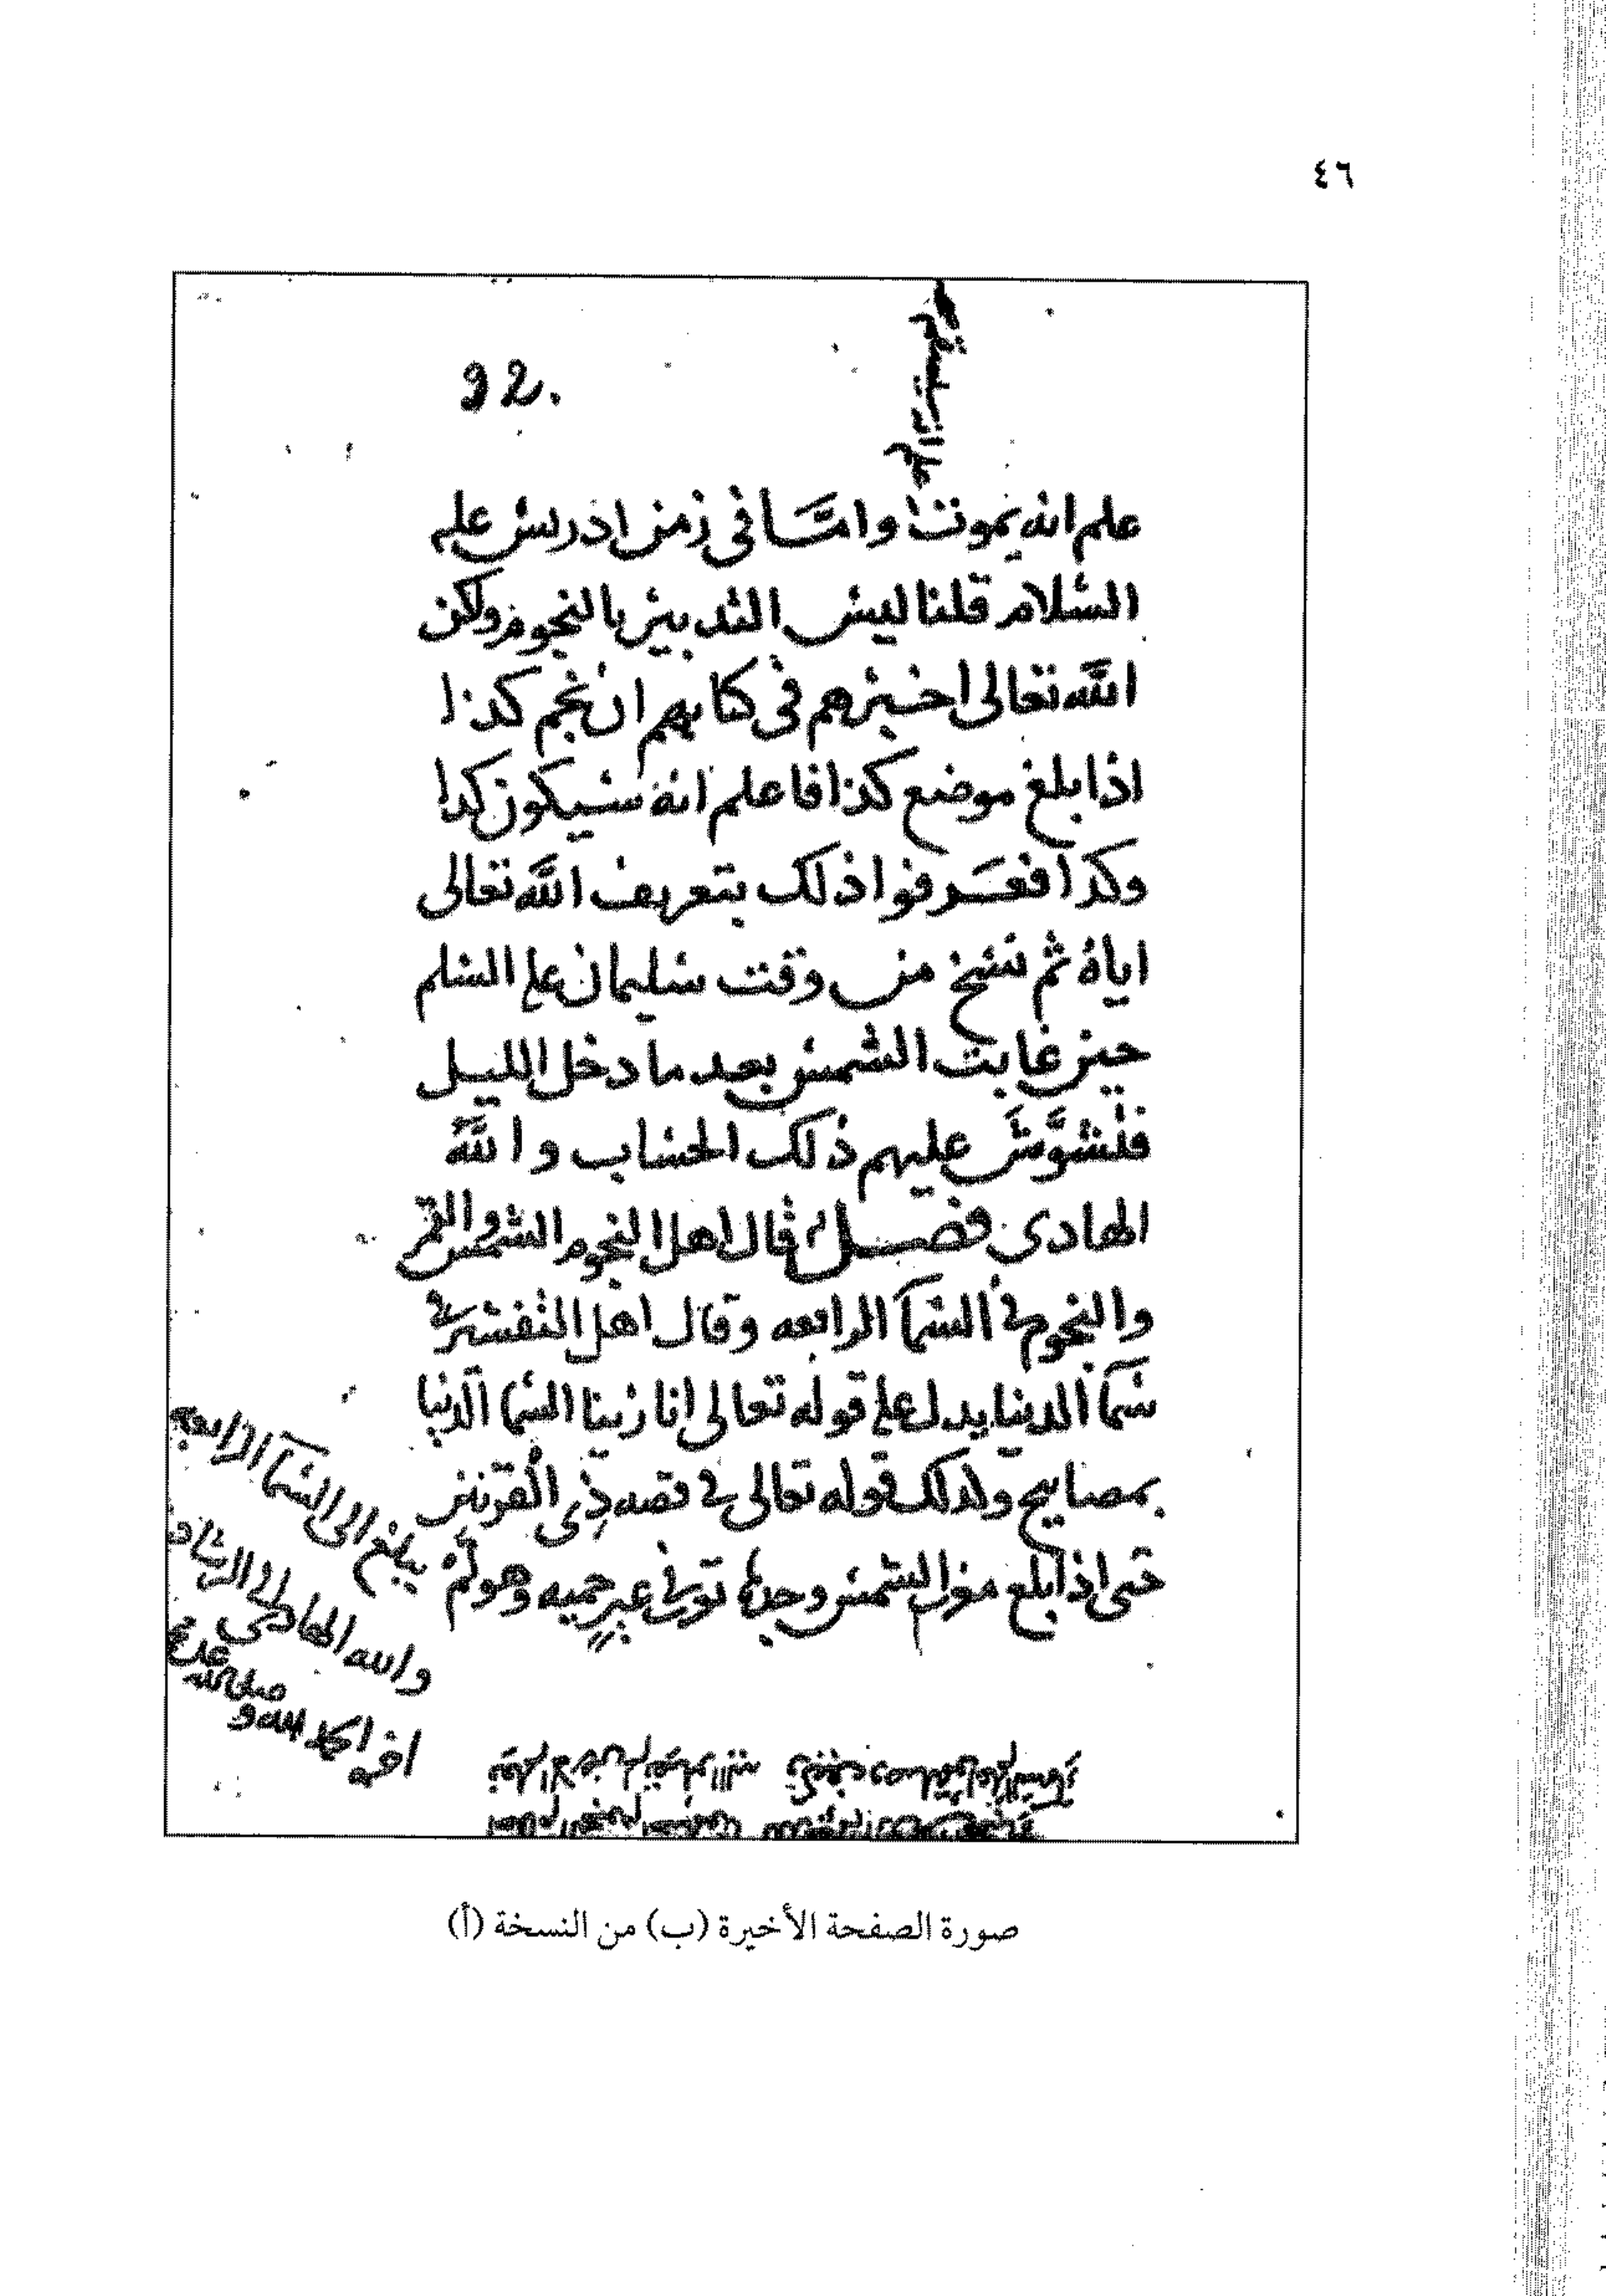 ٤٦
92.
علم انه يسقم
علم انه يموت واما في زمن ادريس عليه
السلام قلنا ليس التدبير بالنجوم ولكن
الله تعالى اخبرهم في كتابهم ان نجم كذا
اذا بلغ موضع كذا فاعلم انه سيكون كدا
وكدا فعرفوا ذلك بتعريف الله تعالى
اياه ثم نسخ من وقت سليمان علم السلم
حين غابت الشمس بعد ما دخل الليل
فتشوش عليهم ذلك الحساب والله
الهادى فصل قال اهل النجوم الشمس والقمر
والنجوم في السما الرابعه وقال اهل التفسير في
سما الدنيا يدل على قوله تعالى انا زينا السما الدنيا
بمصابيح ولذلك قوله تعالى في قصه ذى القرنين
حتى اذا بلغ مغرب الشمس وجدها تغرب في عين حميه وهو لم
يبلغ الى السما الرابعه
والله الهادى الى الرشاد
صورة الصفحة الأخيرة (ب) من النسخة (أ)